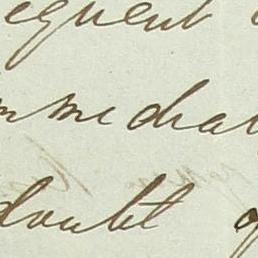 equent
mmediat
doubt